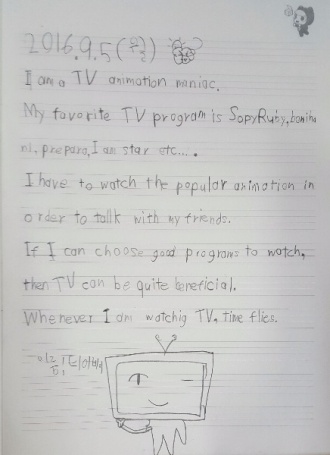 2016.9.5(
I am a TV animation maniac.
My favorite TV program is SopyRuby, bonihani
ni, prepara, I am star etc....
I have to watch the popular animation in
order to talk with my friends.
If I can choose good programs to watch,
then TV can be quite beneficial.
Whenever I am watchig TV, time flies.